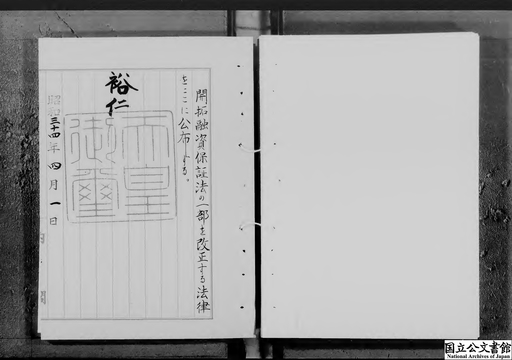 開拓融資保証法の一部を改正する法律
をここに公布する。
裕仁
天皇御璽
昭和三十四年四月一日
国立公文書館
National Archives of Japan